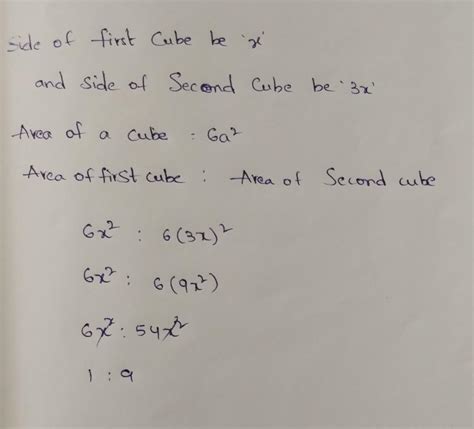 side of first Cube be 'x'
and side of Second Cube be '3x'
Area of a cube : 6a²
Area of first cube : Area of Second cube
6x² : 6(3x)²
6x² : 6(9x²)
6x² : 54x²
1 : 9